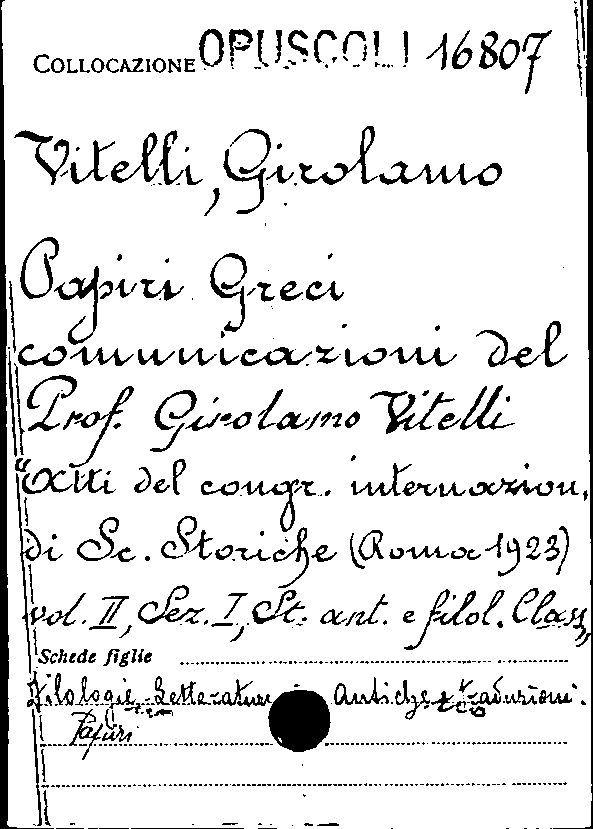 COLLOCAZIONE OPUSCOLI 16807
Vitelli, Girolamo
Papiri Greci
comunicazioni del
Prof. Girolamo Vitelli
"Atti del congr. internazion.
di Sc. Storiche (Roma 1923)
vol. II, Sez. I, St. ant. e filol. Class"
Schede figlie
Filologie, Letterature Antiche e traduzioni.
Papiri